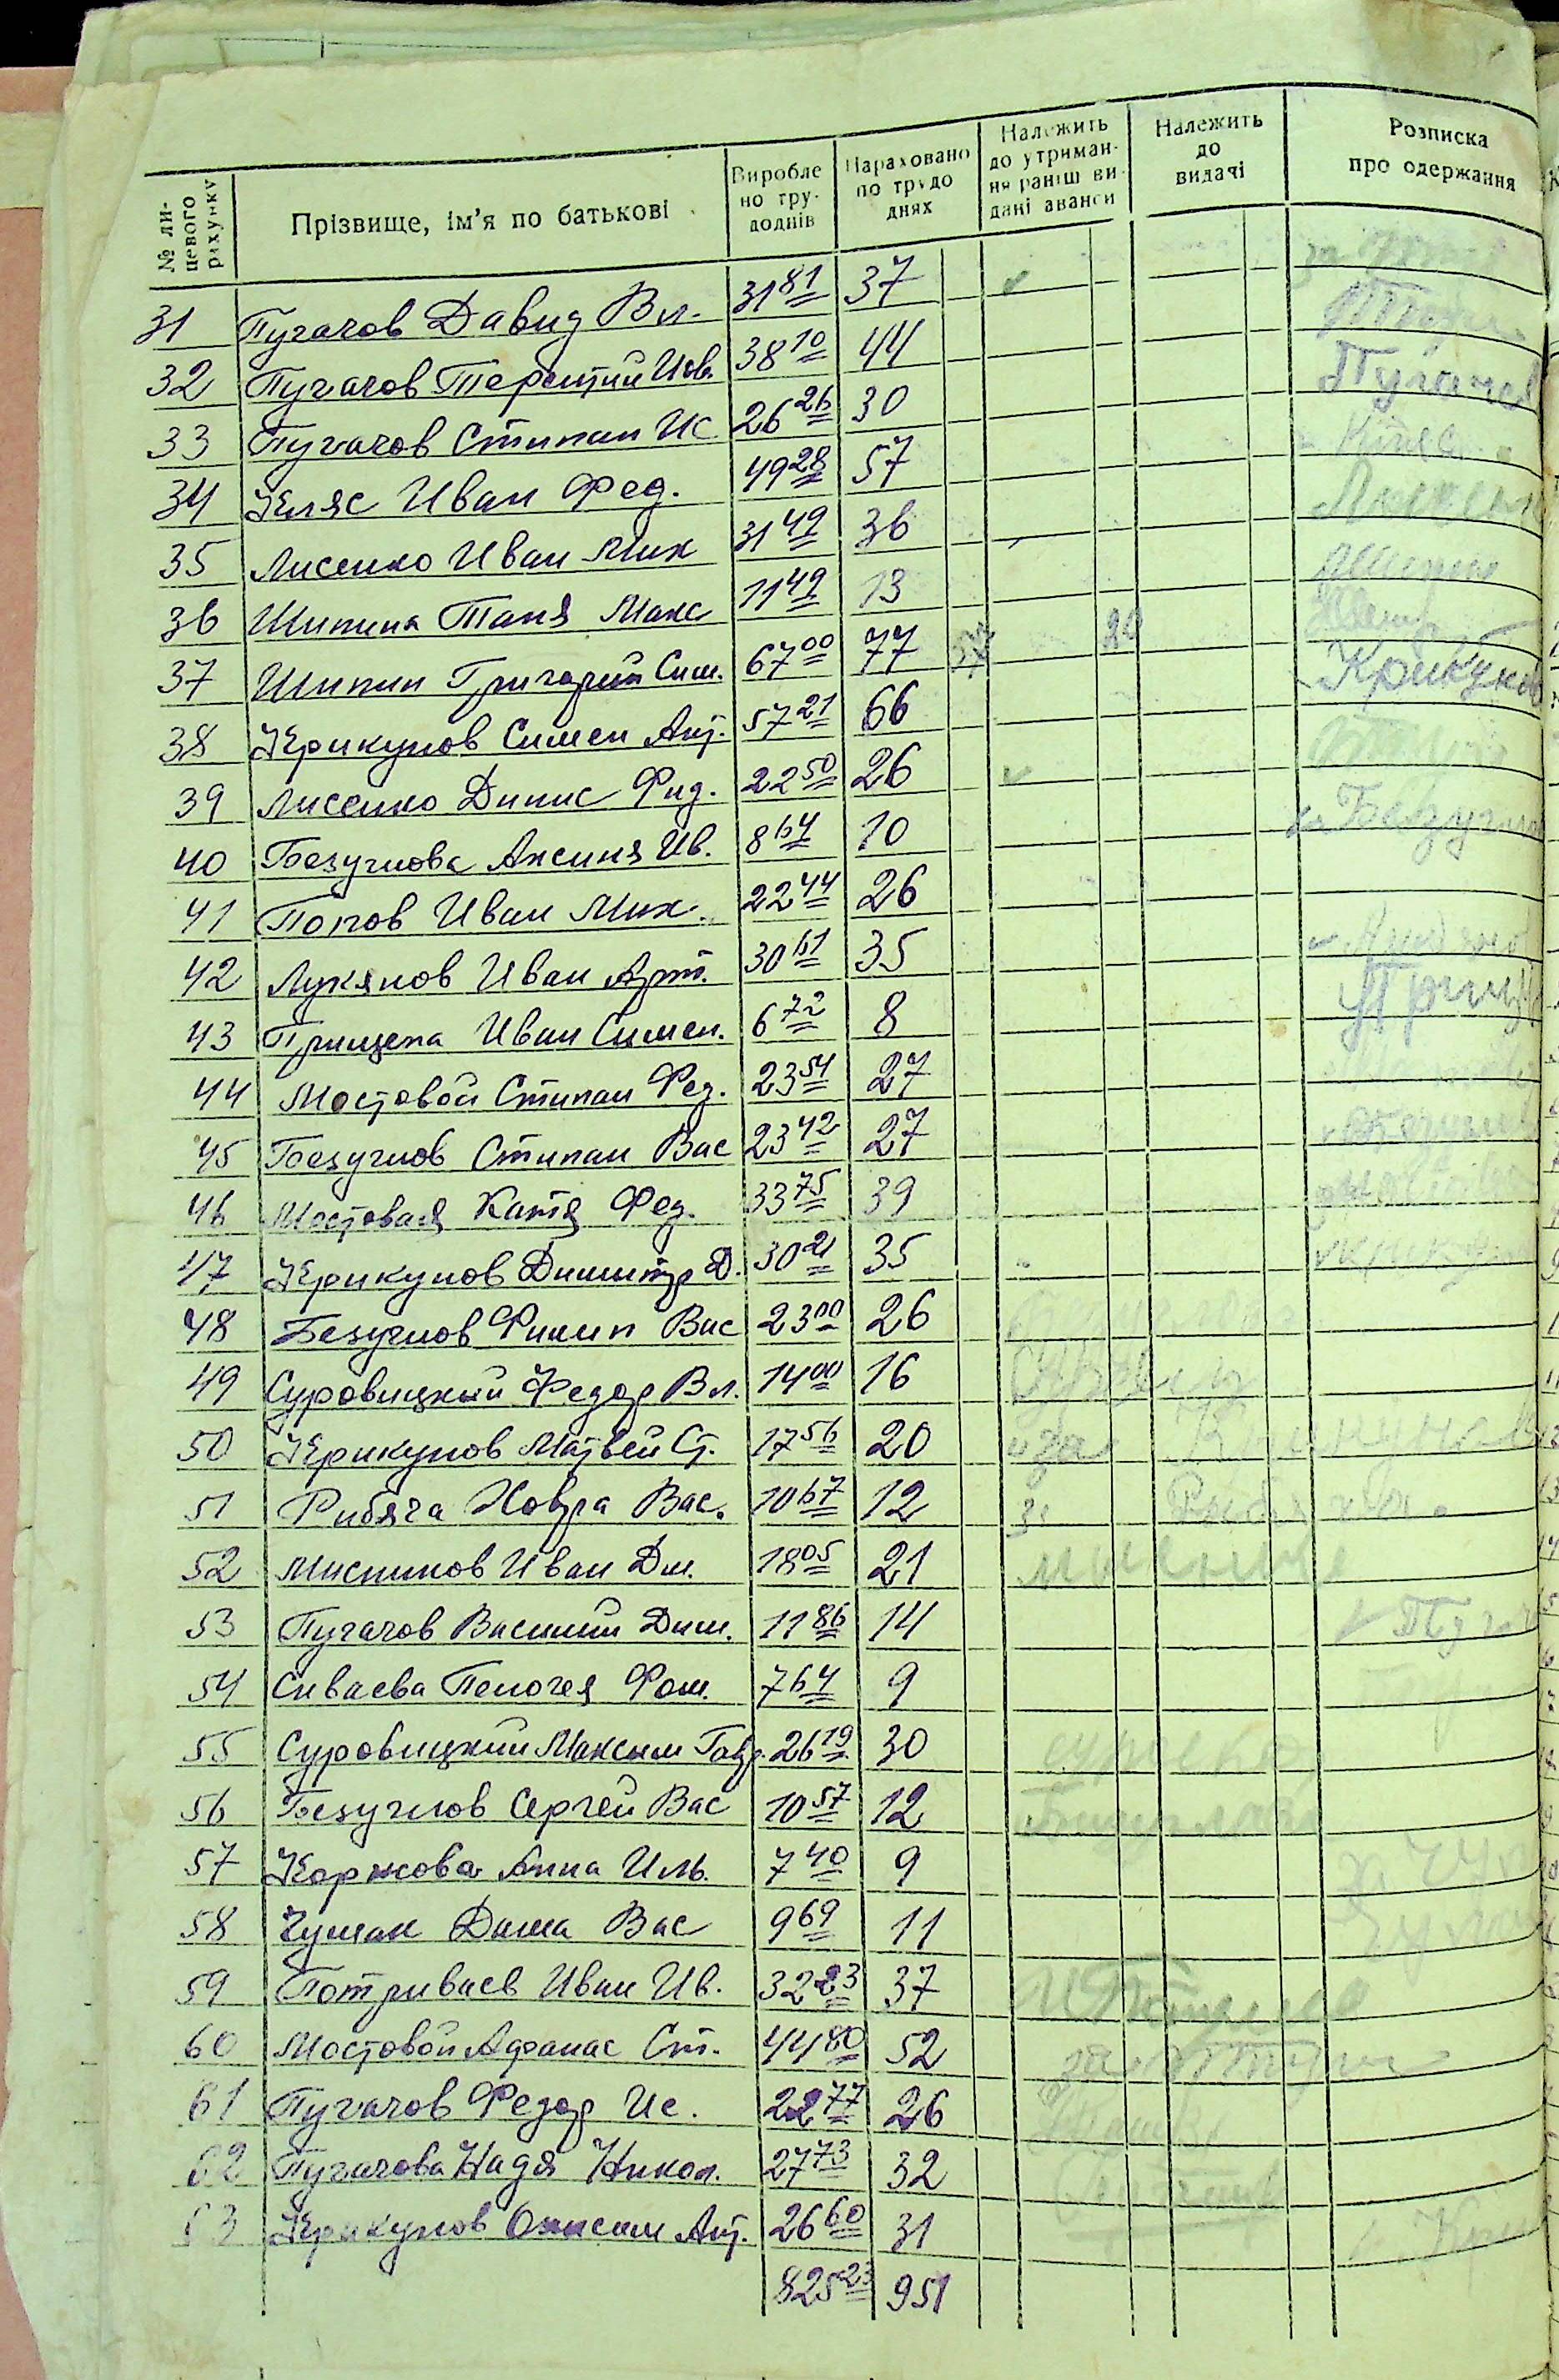 № ли-
цевого
рахунку
Прізвище, ім'я по батькові
Виробле
но тру-
доднів
Нараховано
по трудо
днях
Належить
до утриман-
ня раніш ви-
дані аванси
Належить
до
видачі
Розписка
про одержання
31 Пугачов Давид Вл. 31 81 37
32 Пугачов Терентий Исв. 38 10 44
33 Пугачов Стипан Ис 26 26 30 Пугачев
34 Кляс Иван Фед. 49 28 57 Кляс
35 Лисенко Иван Мих 31 49 36
36 Шипина Таня Макс 11 49 13
37 Шипин Григорий Сим. 67 00 77 20
38 Крикунов Симен Ант. 57 21 66 Крикунов
39 Лисенко Динис Фид. 22 50 26
40 Безуглова Аксиня Ив. 8 64 10 Безугло
41 Попов Иван Мих. 22 44 26
42 Лукянов Иван Арт. 30 61 35
43 Прищепа Иван Симен. 6 72 8
44 Мостовой Стипан Фед. 23 54 27
45 Безуглов Стипан Вас 23 42 27
46 Мостовая Катя Фед. 33 75 39
47 Крикунов Димитр Д. 30 21 35
48 Безуглов Филип Вас 23 00 26
49 Суровицкий Федор Вл. 14 00 16
50 Крикунов Матвей Ст. 17 56 20 за Крикунов
51 Рибяча Ховра Вас. 10 67 12
52 Мисников Иван Дм. 18 05 21
53 Пугачов Василий Дим. 11 86 14 Пугач
54 Сиваева Пелогея Фом. 7 64 9
55 Суровицкий Максим Гавр. 26 19 30
56 Безуглов Сергей Вас 10 57 12
57 Коржова Анна Иль. 7 40 9
58 Чумак Даша Вас 9 69 11
59 Потриваев Иван Ив. 32 23 37
60 Мостовой Афанас Ст. 44 80 52
61 Пугачов Федор Ис. 22 77 26
62 Пугачова Надя Никол. 27 73 32
63 Крикунов Онисим Ант. 26 60 31
825 23 951